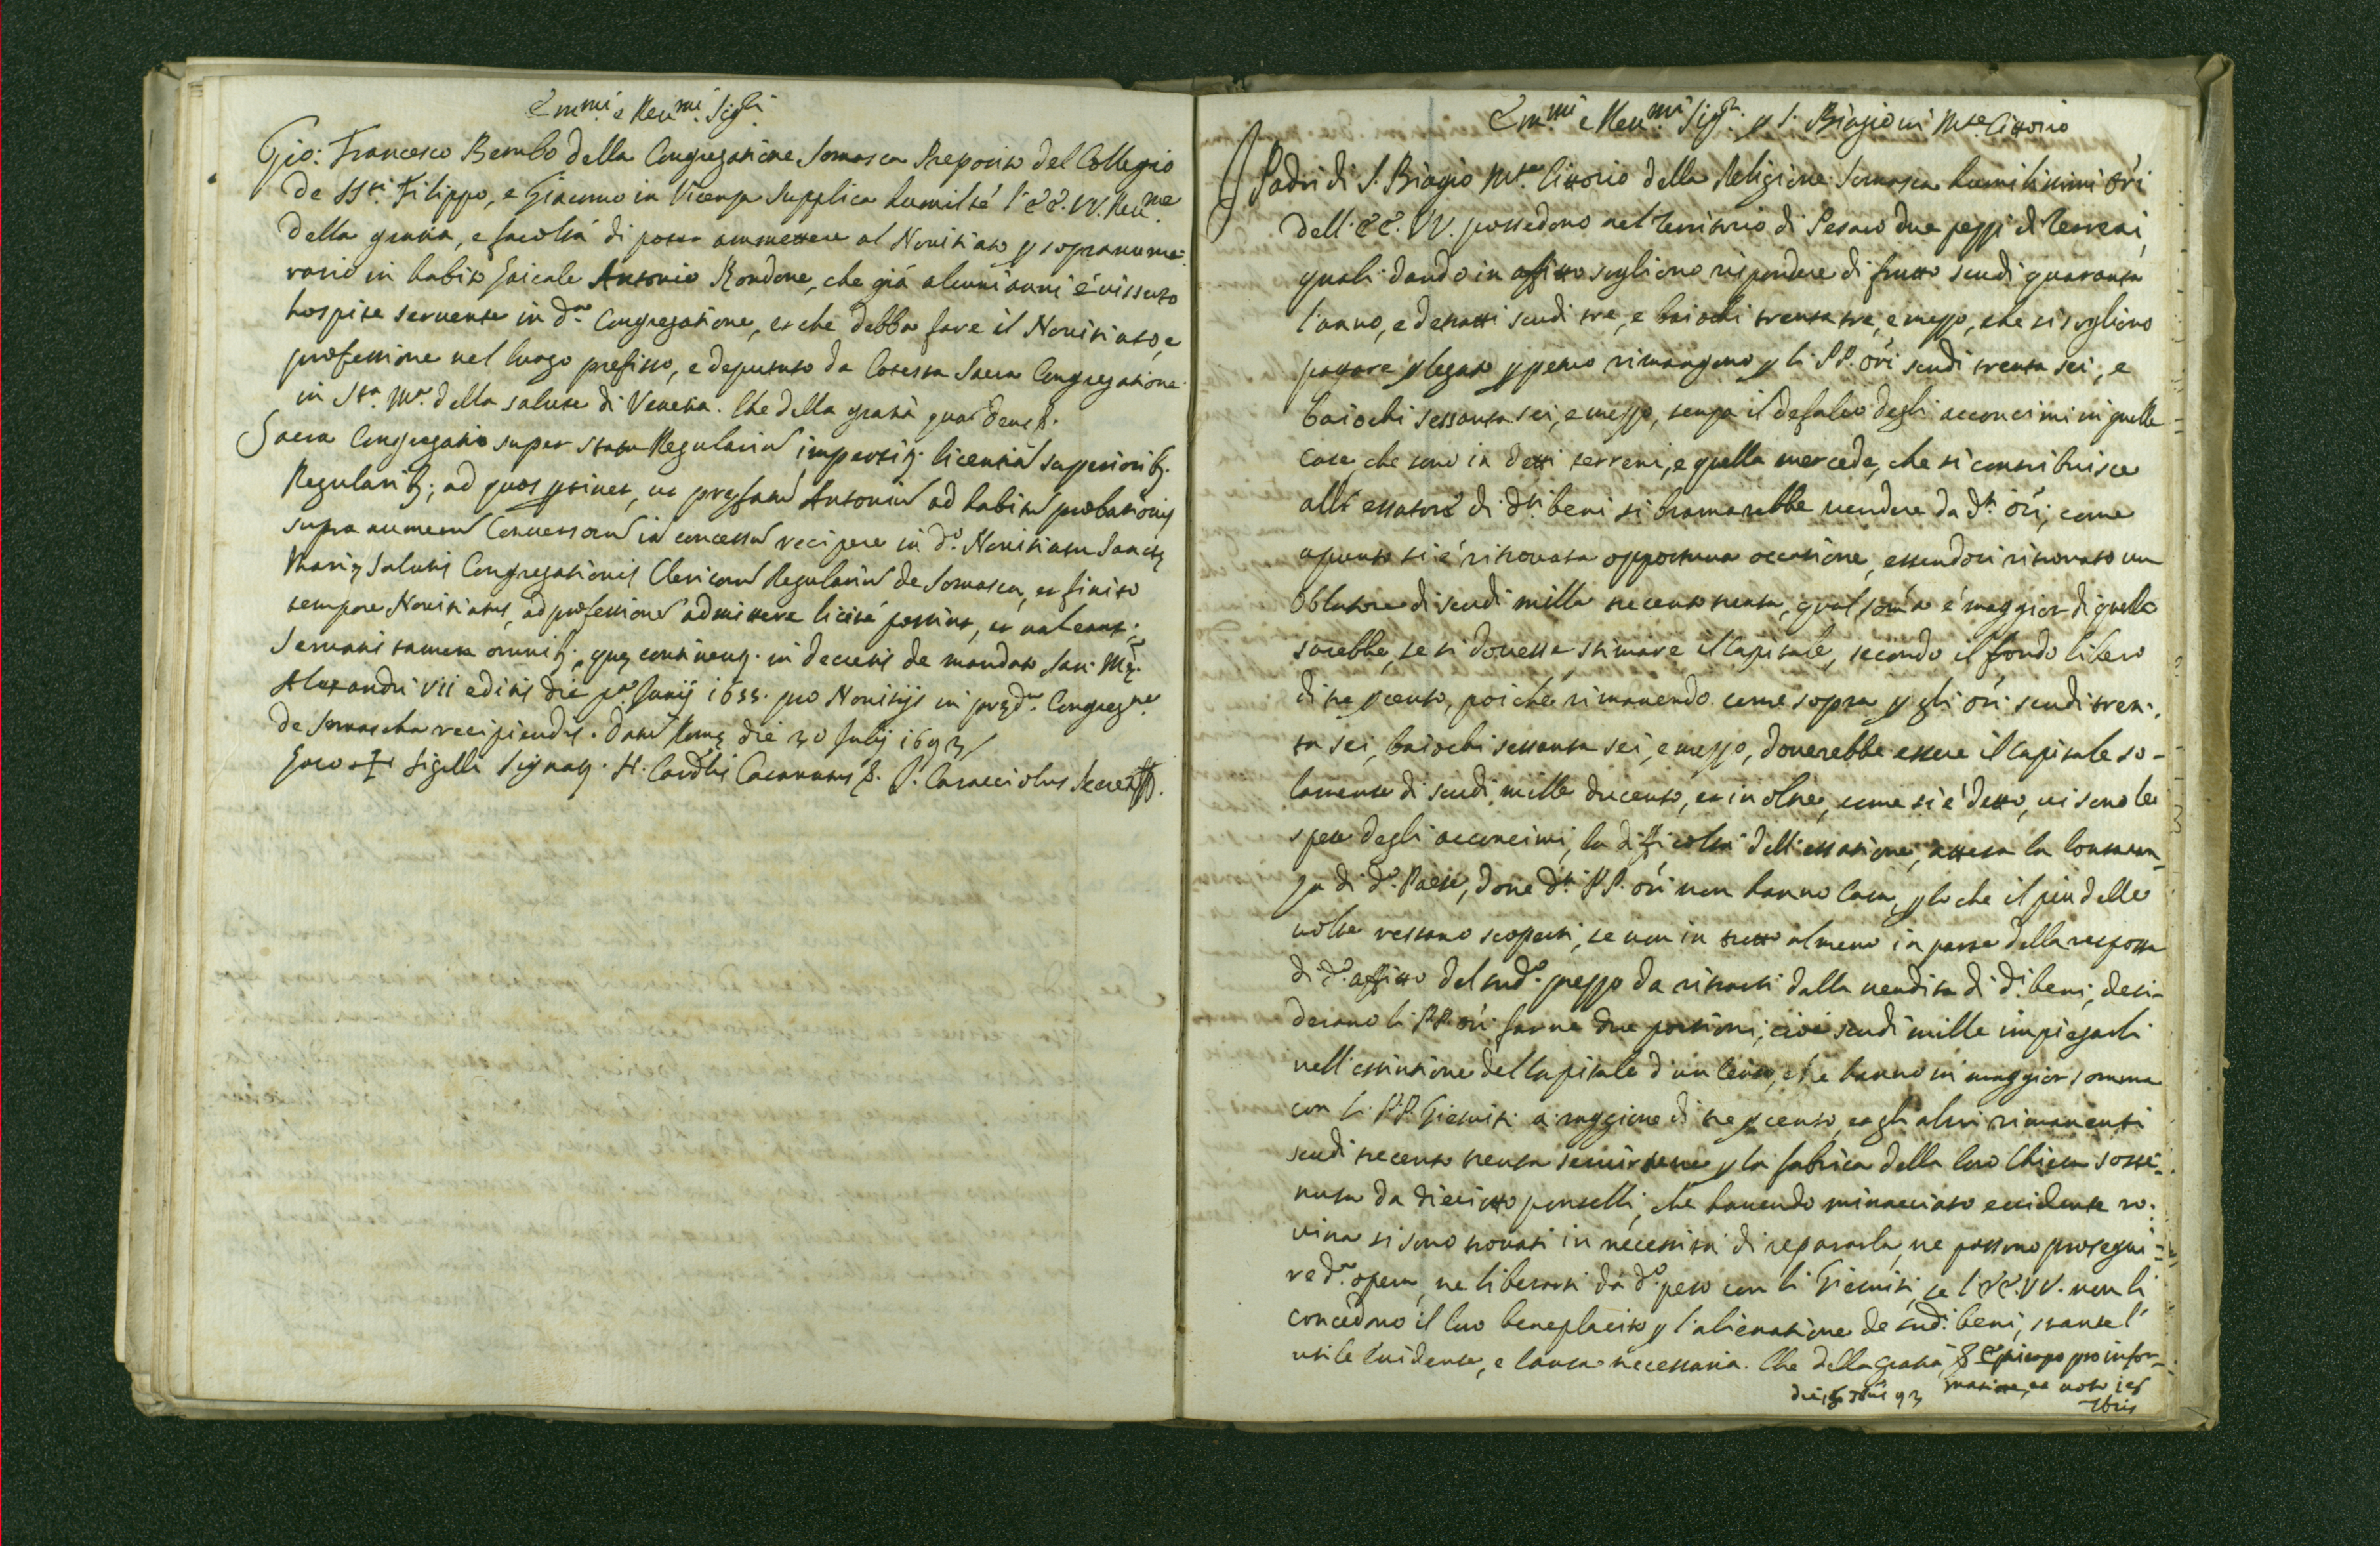 Em.mi e Reu.mi Sig.ri
Gio: Francesco Bembo della Congregatione Somasca Preposito del Collegio
de SS.ti Filippo, e Giacomo in Vicenza supplica humilte l'EE. VV. Reu.me
della gratia, e facoltà di poter ammettere al Nouitiato p sopranume-
rario in habito laicale Antonio Rondone, che già alcuni anni è uissuto
hospite seruente in d.a Congregatione, et che debba fare il Nouitiato, e
professione nel luogo prefisso, e deputato da Cotesta Sacra Congregatione
in S.ta M.a della salute di Venetia. Che della gratia qua Deus &.
Sacra Congregatio super statu Regulariu impertitq. licentia superiorib.
Regularib; ad quos ptinet, ut prefatu Antoniu ad habitu probationis
supra numeru Conuersoru in concessu recipere in d.o Nouitiatu Sanctę
Marię Salutis Congregationis Clericoru Regulariu de Somasca, et finito
tempore Nouitiatus, ad professione admittere licité possint, et ualeant;
Seruatis tamen omnib; quę continentq. in decretis de mandato san: Mę:
Alexandri VII editis die p.a Junij 1655. pro Nouitijs in pręd.a Congreg.ne
de Somascha recipiendis. Datu Romę die 30 Julij 1693
Loco + Sigilli Signatq. H. Card.lis Casanatus &. P. Caracciolus Secret.s
Em.mi e Reu.mi Sig.ri p S. Biagio in M.te Cittorio
Padri di S. Biagio M.te Cittorio della Religione Somasca humilissimi ori
dell'EE. VV. possedono nel territorio di Pesaro due pezzi di terreni,
quali dando in affitto sogliono rispondere di frutto scudi quaranta
l'anno, e detratti scudi tre, e baiochi trenta tre, e mezzo, che si sogliono
pagare p legato p petuo rimangono p li PP. ori scudi trenta sei, e
baiochi sessanta sei, e mezzo, senza il defalco degli acconcimi in quelle
case che sono in detti terreni, e quella mercede, che si contribuisce
all'essatore di d.ti beni si bramarebbe uendere da d.ti ori, come
apunto si è ritrouata opportuna occasione, essendosi ritrouato un
Oblatore di scudi mille trecento trenta, qual soma è maggior di quella
sarebbe, se si douesse stimare il Capitale, secondo il fondo libero
di tre p cento, poiche rimanendo come sopra p gli ori scudi tren-
ta sei, baiochi sessanta sei, e mezzo, douerebbe essere il Capitale so-
lamente di scudi mille ducento, et in oltre, come si è detto, ui sono le
spese degli acconcimi, la difficoltà dell'essatione, attesa la lontanan-
za di d.o Paese, doue d.ti PP. ori non hanno Casa, p lo che il piu delle
uolte restano scoperti, se non in tutto almeno in parte della risposta
di d.o affitto del sud.o prezzo da ritrarsi dalla uendita di d.i beni, desi-
derano li PP. ori farne due portioni, cioè scudi mille impiegarli
nell'estintione del Capitale d'un Censo, che hanno in maggior somma
con li PP. Giesuiti a raggione di tre p cento, et gli altri rimanenti
scudi trecento trenta seruirsene p la fabrica della loro Chiesa soste-
nuta da dieciotto pontelli, che hauendo minacciato euidente ro-
uina si sono trouati in necessità di repararla, ne possono prosegui-
re d.a opera, ne liberarsi da d.o peso con li Giesuiti, se l'EE. VV. non li
concedono il loro beneplacito p l'alienatione de sud.i beni, stante l'
utile euidente, e causa necessaria. Che della gratia &. Episcopo pro infor-
matione, et uoto